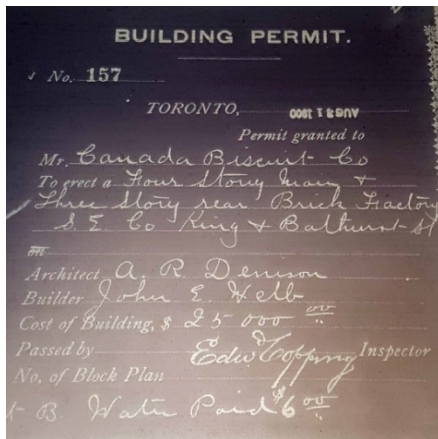 BUILDING PERMIT.
No. 157
TORONTO, AUG 21 1900
Permit granted to
Mr. Canada Biscuit Co
To erect a Four Story Main &
Three Story rear Brick Factory
S. E. Co King & Bathurst St
on
Architect A. R. Denison
Builder John E. Webb
Cost of Building, $ 25 000 00
Passed by Edw Copping Inspector
No. of Block Plan
B. Water Paid $6 00